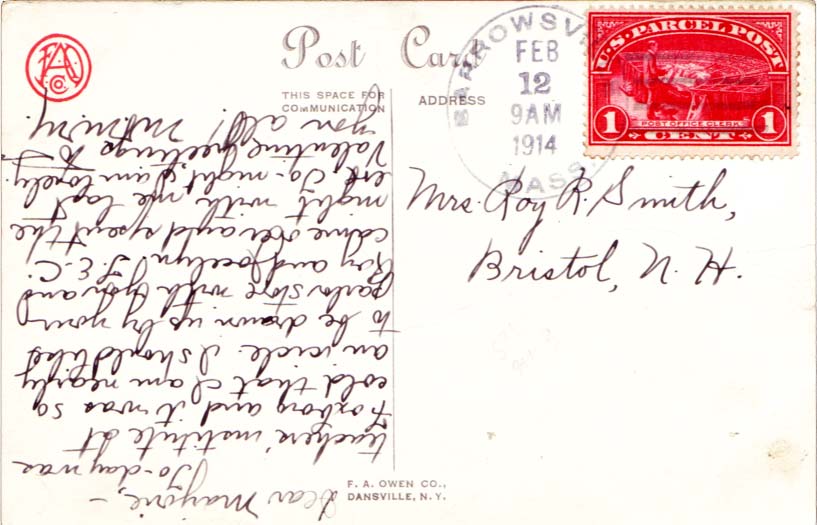 FAO
CO.
Post Card
THIS SPACE FOR
COMMUNICATION
ADDRESS
BARROWSV
FEB
12
9AM
1914
MASS
U.S. PARCEL POST
POST OFFICE CLERK
1 CENT 1
Mrs. Roy R. Smith,
Bristol, N. H.
Dear Marjorie, –
To-day was
teachers' institute at
Foxboro and it was so
cold that I am nearly
an icicle. I should like
to be drawn up by your
parlor stove with you and
Roy and Jocelyn. J. E. C.
came over and spent the
night with me last
To-night I am lonely.
Valentine greetings to
you all!
F. A. OWEN CO.,
DANSVILLE, N. Y.